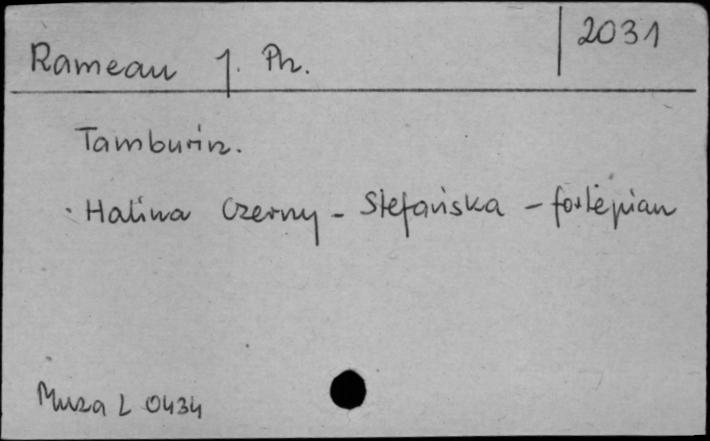 Rameau J. Ph.
2031
Tamburin.
Halina Czerny - Stefańska - fortepian
Muza L 0434